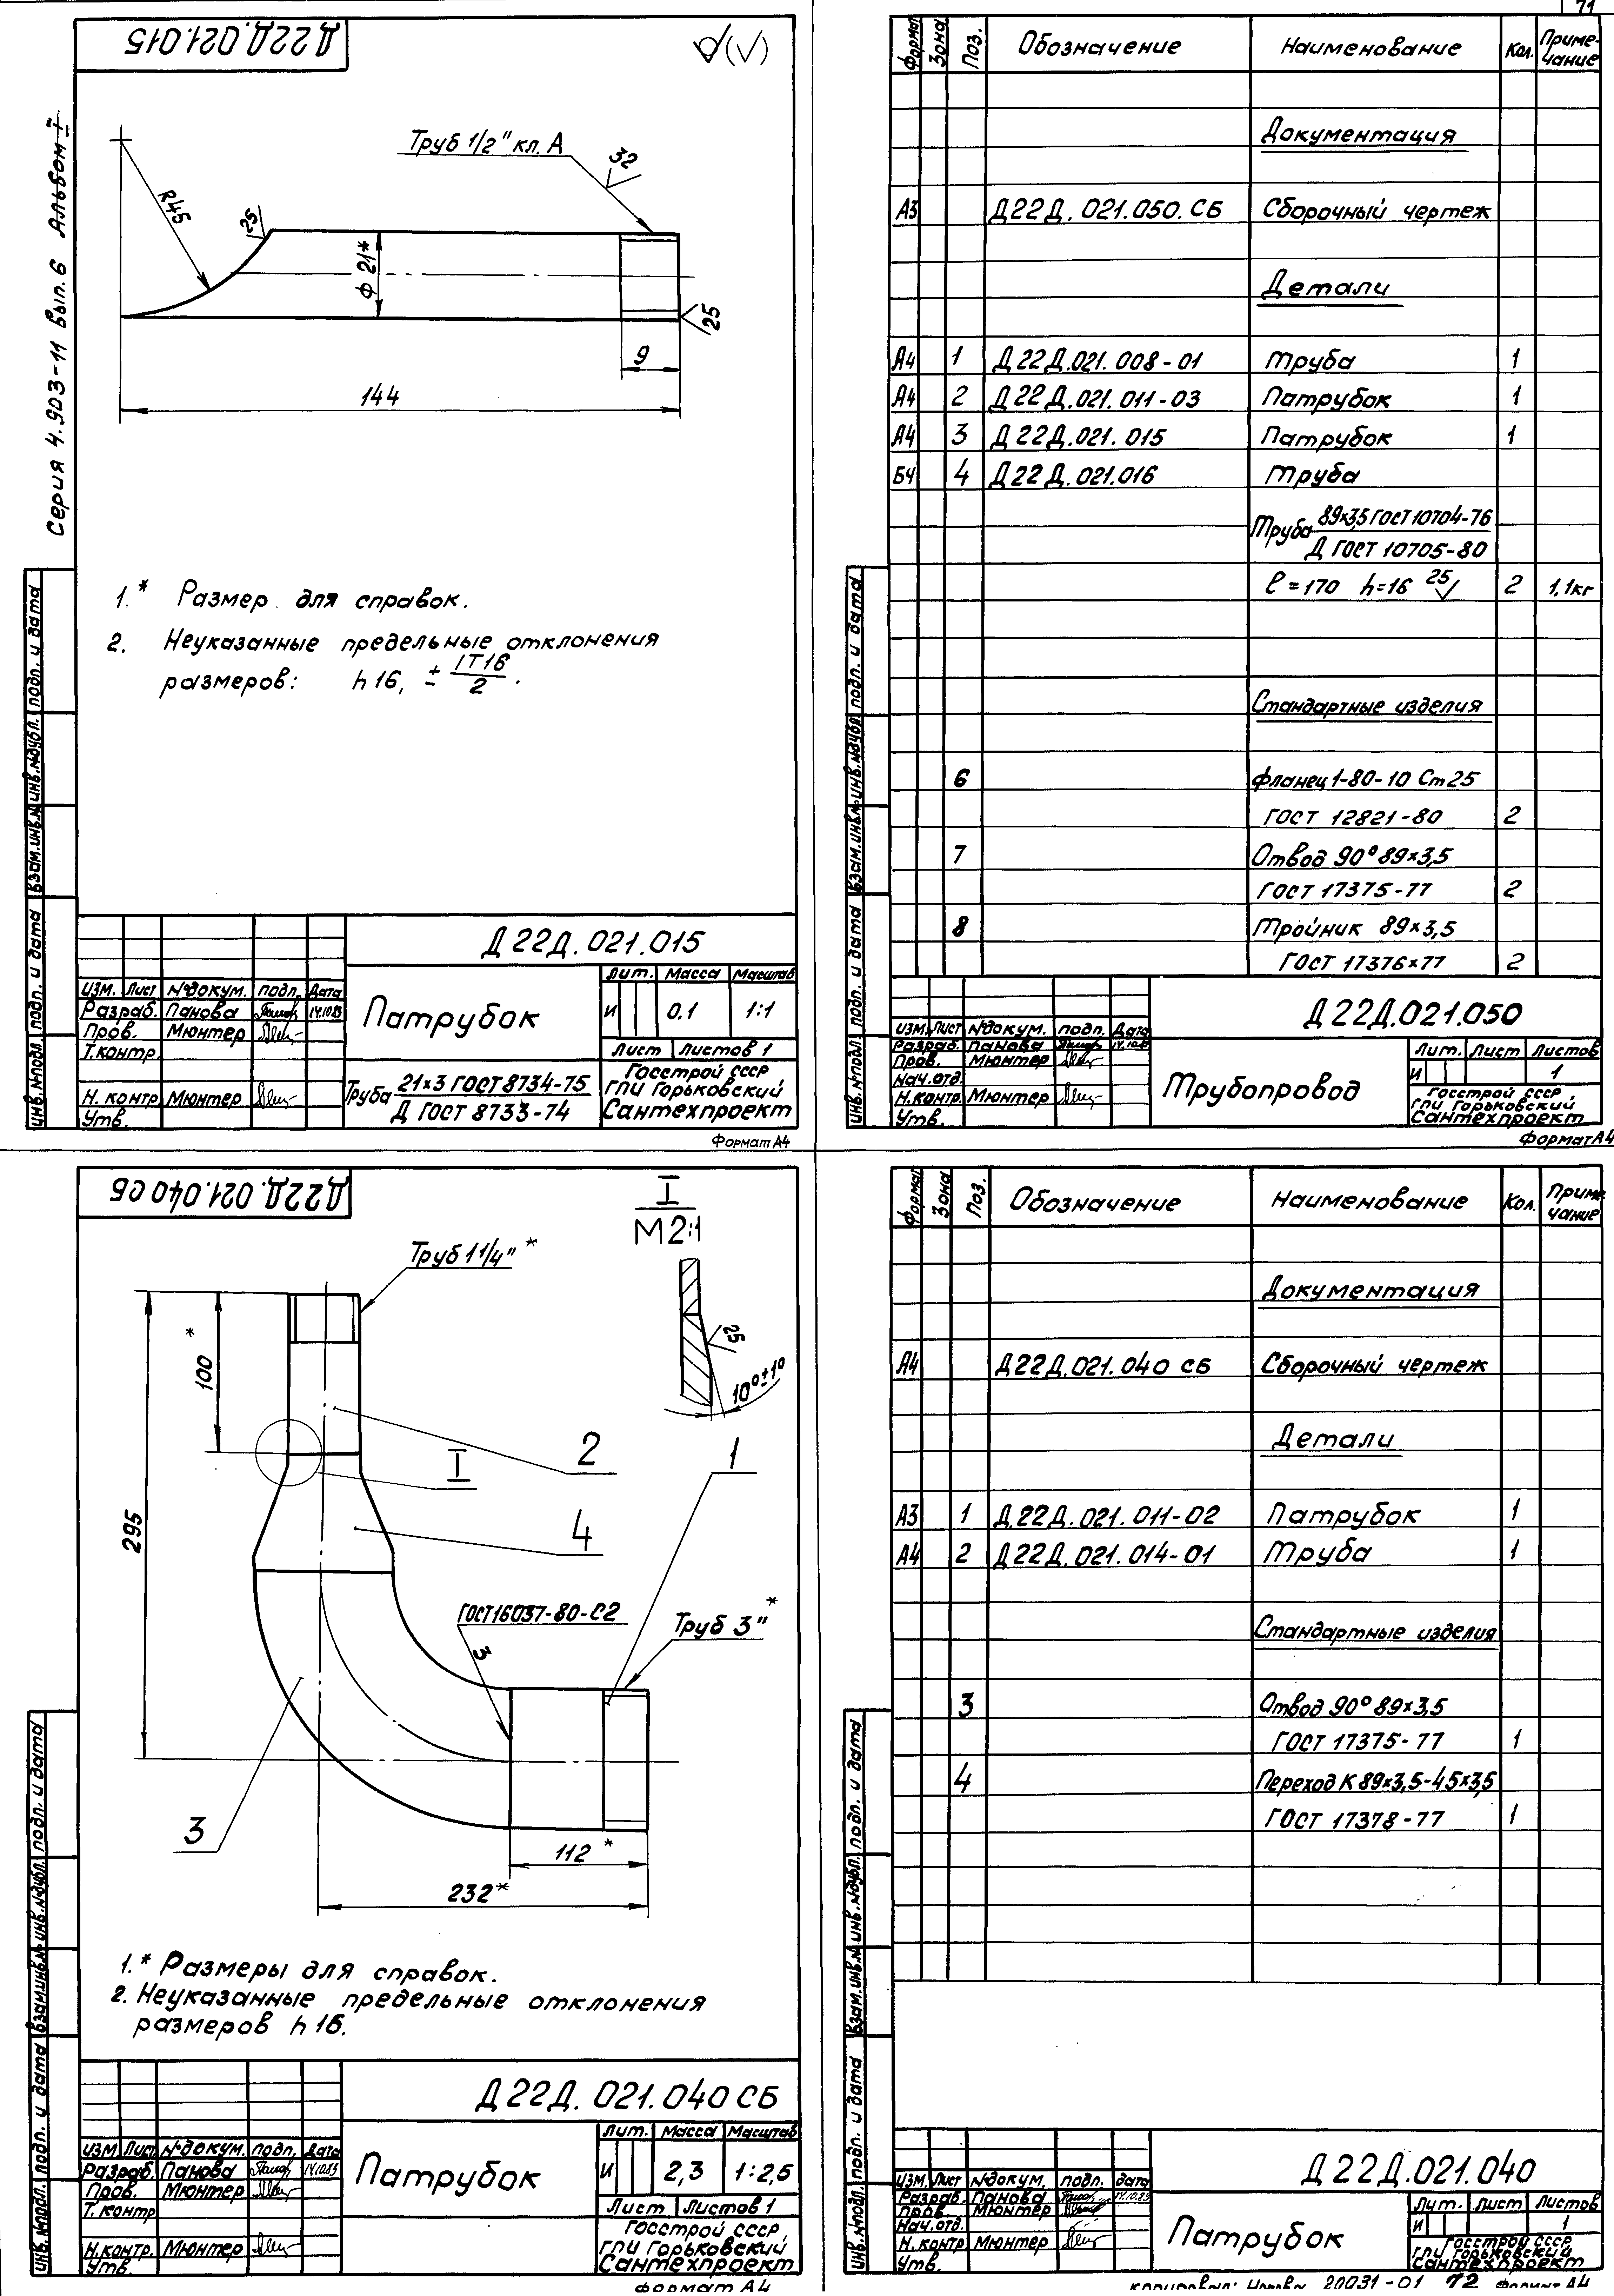 Д22Д.021.015
Серия 4.903-11 Вып.6 Альбом I
√(√)
Труб 1/2" кл. А
32
R45
25
ф 21*
25
9
144
1.* Размер для справок.
2. Неуказанные предельные отклонения
размеров: h16, ± IT16/2.
Д22Д.021.015
Изм. Лист №докум. подп. Дата
Разраб. Панова 14.10.83
Пров. Мюнтер
Т.контр.
Н.контр. Мюнтер
Утв.
Патрубок
Лит. Масса Масштаб
И 0,1 1:1
Лист Листов 1
Труба 21×3 ГОСТ 8734-75
Д ГОСТ 8733-74
Госстрой СССР
ГПИ Горьковский
Сантехпроект
Формат А4
инв.№подл. подп. и дата взам.инв.№ инв.№дубл. подп. и дата
71
Формат Зона Поз. Обозначение Наименование Кол. Приме-
чание
Документация
А3 Д22Д.021.050.СБ Сборочный чертеж
Детали
А4 1 Д22Д.021.008-01 Труба 1
А4 2 Д22Д.021.011-03 Патрубок 1
А4 3 Д22Д.021.015 Патрубок 1
БЧ 4 Д22Д.021.016 Труба
Труба 89×3,5 ГОСТ 10704-76
Д ГОСТ 10705-80
ℓ=170 h=16 25 2 1,1кг
Стандартные изделия
6 Фланец 1-80-10 Ст25
ГОСТ 12821-80 2
7 Отвод 90° 89×3,5
ГОСТ 17375-77 2
8 Тройник 89×3,5
ГОСТ 17376×77 2
Д22Д.021.050
Изм. Лист №докум. подп. Дата
Разраб. Панова 14.10.83
Пров. Мюнтер
Нач.отд.
Н.контр. Мюнтер
Утв.
Трубопровод
Лит. Лист Листов
И 1
Госстрой СССР,
ГПИ Горьковский
Сантехпроект
Формат А4
инв.№подл. подп. и дата взам.инв.№ инв.№дубл. подп. и дата
Д22Д.021.040 СБ
I
М2:1
Труб 1 1/4" *
25
10°±1°
100 *
2
1
I
4
295
ГОСТ 16037-80-С2
3
Труб 3" *
3
112 *
232*
1.* Размеры для справок.
2. Неуказанные предельные отклонения
размеров h16.
Д22Д.021.040 СБ
Изм. Лист №докум. подп. Дата
Разраб. Панова 14.10.83
Пров. Мюнтер
Т.контр
Н.контр. Мюнтер
Утв.
Патрубок
Лит. Масса Масштаб
И 2,3 1:2,5
Лист Листов 1
Госстрой СССР,
ГПИ Горьковский
Сантехпроект
Формат А4
инв.№подл. подп. и дата взам.инв.№ инв.№дубл. подп. и дата
Формат Зона Поз. Обозначение Наименование Кол. Приме-
чание
Документация
А4 Д22Д.021.040 СБ Сборочный чертеж
Детали
А3 1 Д22Д.021.011-02 Патрубок 1
А4 2 Д22Д.021.014-01 Труба 1
Стандартные изделия
3 Отвод 90° 89×3,5
ГОСТ 17375-77 1
4 Переход К 89×3,5-45×3,5
ГОСТ 17378-77 1
Д22Д.021.040
Изм. Лист №докум. подп. дата
Разраб. Панова 14.10.83
Пров. Мюнтер
Нач.отд.
Н.контр Мюнтер
Утв.
Патрубок
Лит. Лист Листов
И 1
Госстрой СССР
ГПИ Горьковский
Сантехпроект
инв.№подл. подп. и дата взам.инв.№ инв.№дубл. подп. и дата
Копировал: 20031-01 72 Формат А4